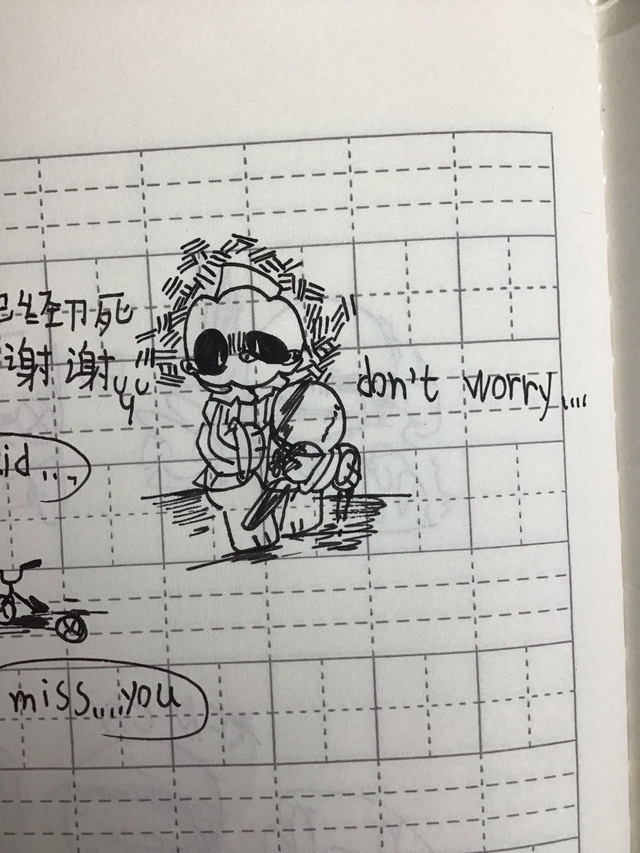 已经死
谢谢
don't worry....
id....
miss....you